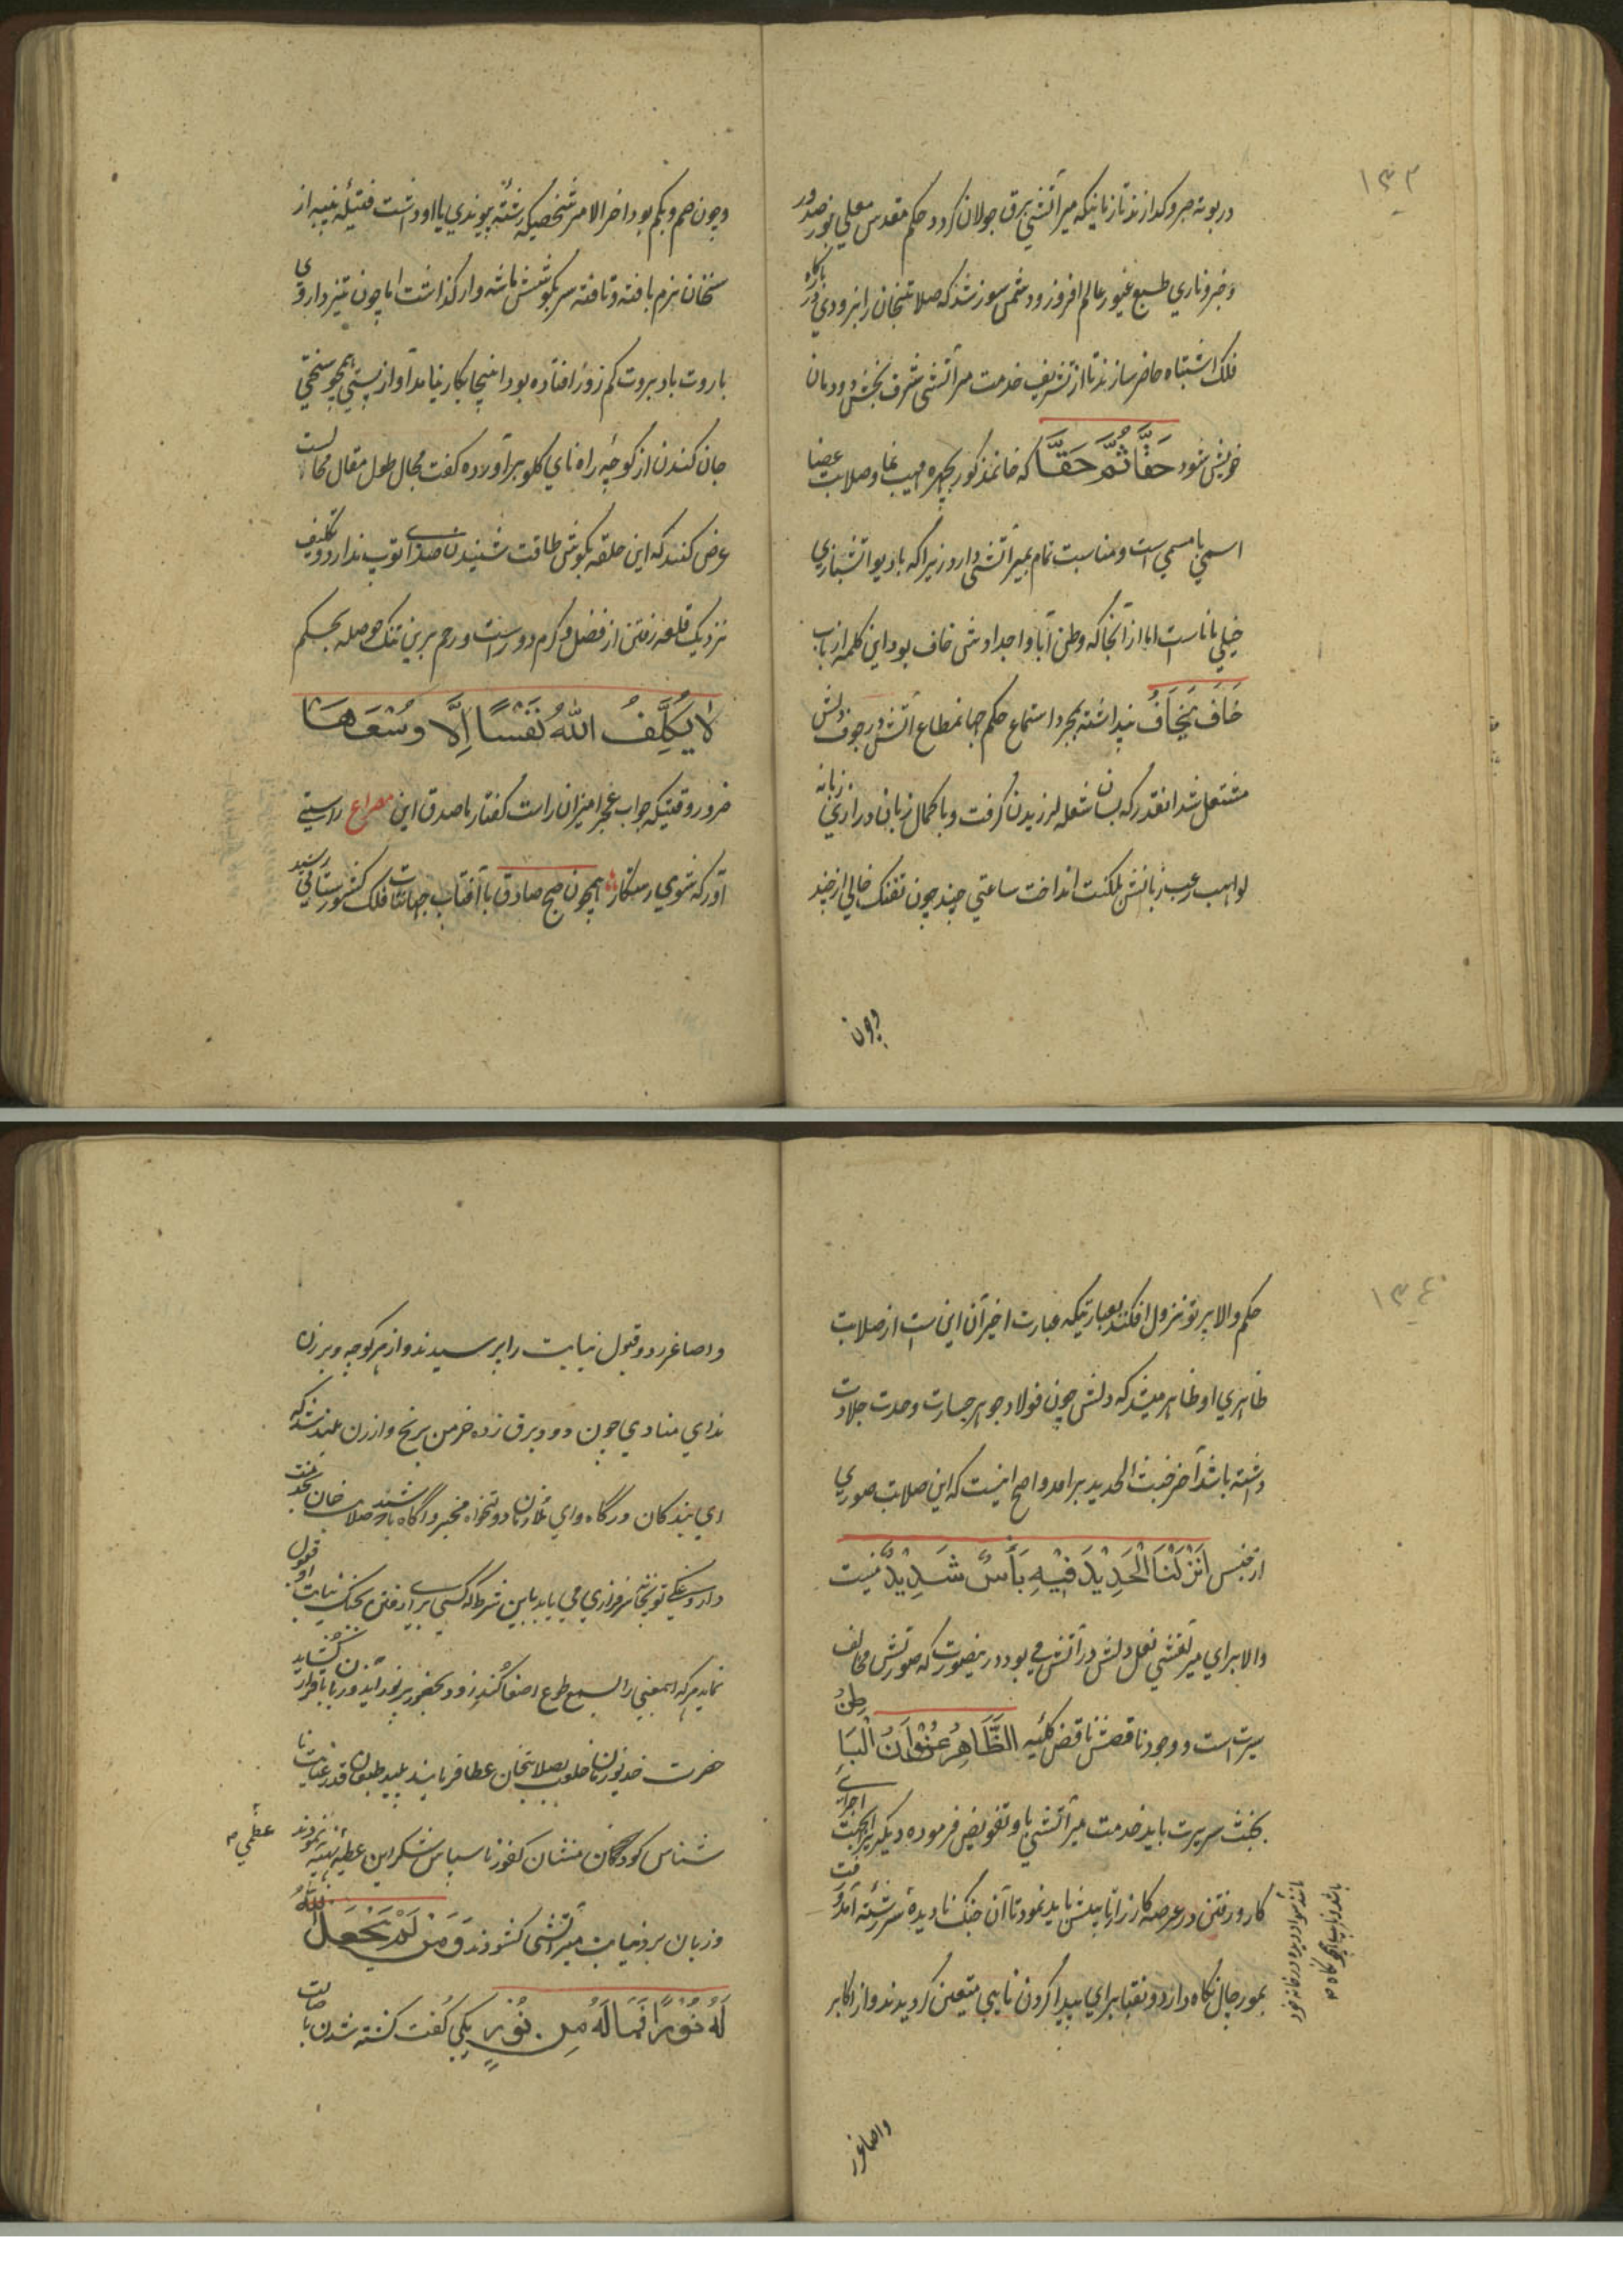 ۱۳۳
در بوته صبر و کدازند تا زمانیکه میر آتشی برق جولان کردد حکم مقدس معلی نور صدور
طبع غیور عالم افروز و دشمن سوز شد که صلابتخان را بزودی در بارگاه
فلک اشتباه حاضر سازند تا از تشریف خدمت میر آتشی شرف بخش دودمان
خویش شود حَقًّا ثُمَّ حَقًّا که خانمذکور بچهره مهیب نما و صلابت
اسمی بامسمی است و مناسبت تمام بمیر آتشی دارد زیرا که با دیو آتشبازی
خیلی ماناست اما از آنجا که وطن آبا و اجدادش خاف بود این کلمه از باب
خَافَ یَخَافُ پنداشته بمجرد استماع حکم جهانمطاع آتش در جوف دلش
مشتعل شد انقدر که بسان شعله لرزیدن کرفت و با کمال زبان درازی زبانه
لواهب رعب زبانش بلکنت انداخت ساعتی چند چون تفنک خالی از
وچون
وچون صم و بکم بود اخر الامر شخصیکه رشته پیوندی با او داشت فتیله پنبه از
سخنان نرم بافته و تافته سر بکوشش ماشه وار کذاشت اما چون تیز داروی
باروت باد بروت کم زور افتاده بود اینجا بکار نیامد آواز پستی همچو سختی
جان کندن از کوچه راه نای کلو برآورده کفت مجال طول مقال محالست
عرض کنند که این حلقه بکوش طاقت شنیدن صدای توپ ندارد و تکلیف
نزدیک قلعه رفتن از فضل و کرم دور است و رحم برین تنک حوصله بحکم
لَا یُکَلِّفُ اللهُ نَفْسًا اِلَّا وُسْعَهَا
ضرور وقتیکه جواب عجز امیز ان راست کفتار با صدق این مصراع راستی
آور که شوی رستکار همچون صبح صادق با آفتاب جهانتاب فلک کشورستانی رسید
۱۳٤
حکم والا پرتو نزول افکند بعبارتیکه عبارت اخیر آن این است از صلابت
ظاهری او ظاهر میشد که دلش چون فولاد جوهر جسارت وحدت جلادت
داشته باشد آخر خبث الحدید برآمد واضح اینست که این صلابت صوری
از جنس اَنْزَلْنَا الْحَدِیْدَ فِیْهِ بَأْسٌ شَدِیْدٌ نیست
والا برای میر آتشی نعل دلش در آتش می بود درینصورت که صورتش مخالف
سیرت است و وجود ناقصش ناقض کلیه الظَّاهِرُ عُنْوَانُ الْبَاطِنِ
بخبث سریرت باید خدمت میر آتشی باو تفویض فرموده دیکریرا بجهت اجرای
کار و رفتن در عرصه کارزار نایبش باید نمود تا آن جنک نادیده سررشته آمد و رفت
بمورچال نکاه دارد و نقبا برای پیدا کردن نایبی متعین کردیدند و از اکابر
واصاغر
واصاغر رد و قبول نیابت را پرسیدند و از هر کوچه و برزن
ندای منادی چون دود برق زده خرمن برنج و ارزن بلند شد که
ای بندکان درگاه و ای ملازمان دولتخواه مخبر و آگاه باشید صلابت خان بخدمت
داروغکی توپخانه سرفرازی می یابد باین شرط که کسی برای رفتن بجنک نیابت او قبول
نماید هر که اینمعنی را بسمع طوع اصغا کند زود بحضور پرنور آید و زبان باقرار آن کشاید
شناس کودکان منشان کفور ناسپاس شکر این عطیه ننمودند
عظمی
و زبان برد نیابت میر آتشی کشودند وَمَنْ لَمْ یَجْعَلِ اللهُ
لَهُ نُوْرًا فَمَا لَهُ مِنْ نُوْرٍ یکی کفت کشته شدن